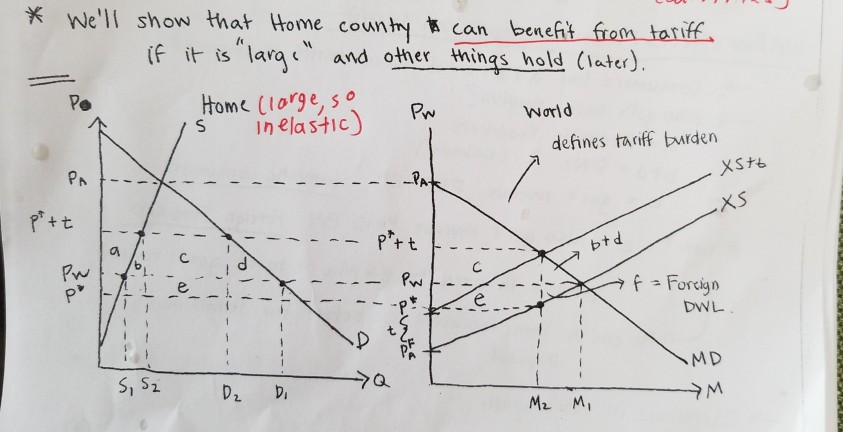 * We'll show that Home country can benefit from tariff.
if it is "large" and other things hold (later).
Home (large, so
inelastic)
S
PA
P*+t
Pw
P*
a
b
c
d
e
D
S1 S2
D2
D1
Q
Pw
World
defines tariff burden
XS+t
XS
PA
P*+t
b+d
c
Pw
e
f = Foreign
DWL.
P*
t
PAF
MD
M2
M1
M